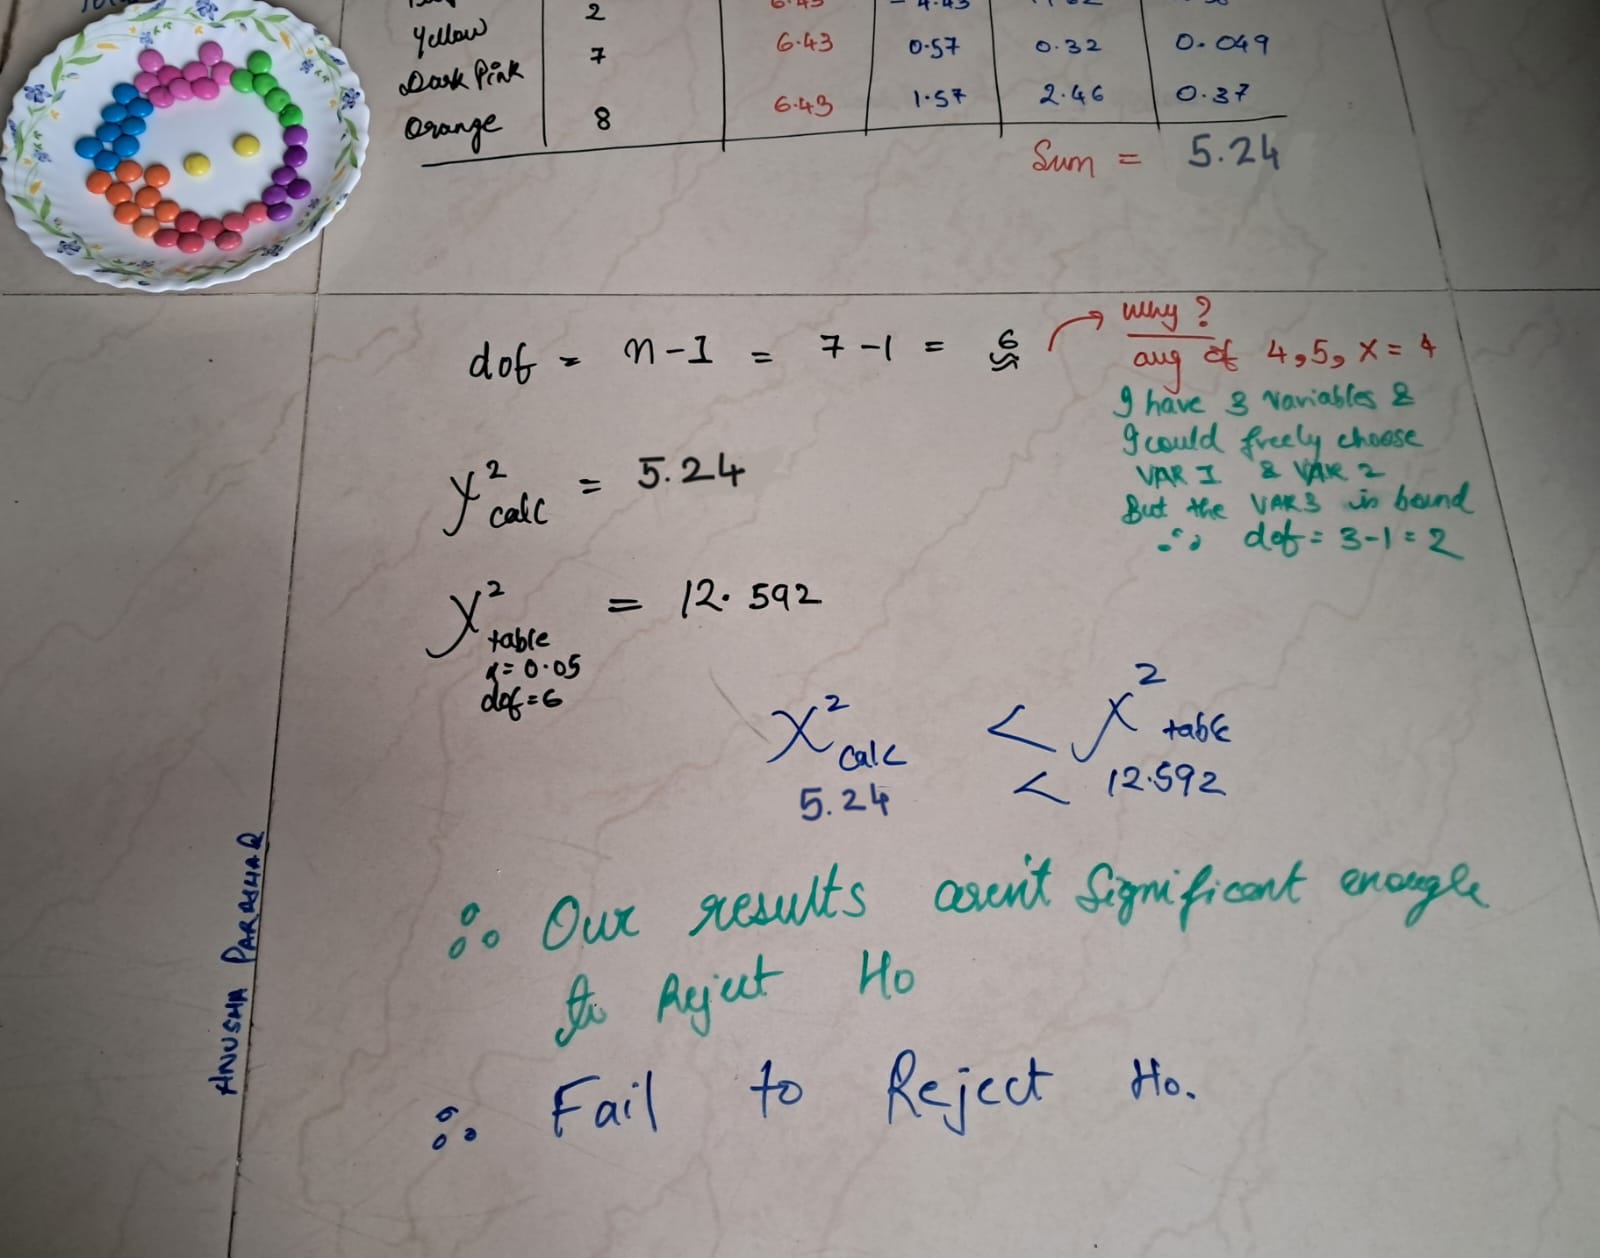 2 6.43 -4.43
Yellow
7 6.43 0.57 0.32 0.049
Dark Pink
Orange 8 6.43 1.57 2.46 0.37
Sum = 5.24
dof = n-1 = 7-1 = 6
Why?
avg of 4, 5, x = 4
I have 3 variables &
I could freely choose
VAR 1 & VAR 2
But the VAR3 is bound
∴ dof = 3-1 = 2
χ² calc = 5.24
χ² table = 12.592
α = 0.05
dof = 6
χ² calc < χ² table
5.24 < 12.592
∴ Our results aren't significant enough
to Reject Ho
∴ Fail to Reject Ho.
ANUSHA PARASHAR